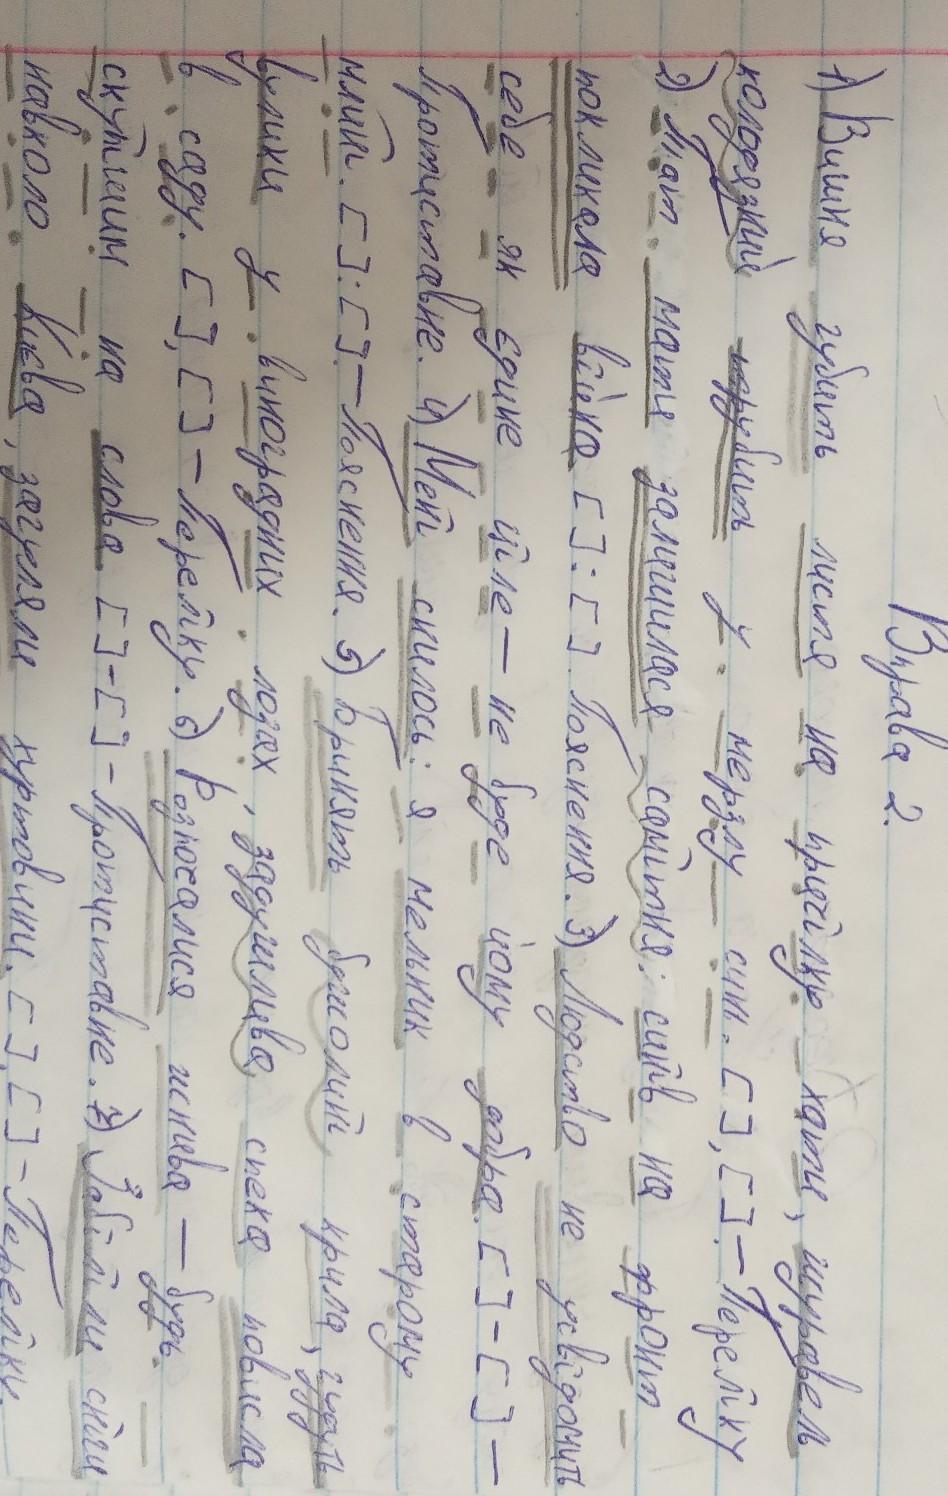 Вправа 2.
1) Вишня губить листя на прийлю хати, журавель
колодязний порубить у мерзлу синь. [ ], [ ]. - Перелік у
2) Так мати залишилася самітня: синів на фронт
покликала війна [ ]: [ ]. Пояснення. 3) Людство не усвідомить
себе як єдине ціле — не буде йому добра. [ ] - [ ] —
Протиставне. 4) Мені снилось: я мельник в старому
млині. [ ]: [ ]. — Пояснення. 5) Бринять бджолині крила, гудуть
вулики у виноградних логах, задушлива спека повисла
в саду. [ ], [ ] - Перелік у. 6) Розпочалися жнива — будь
скупішим на слова [ ] - [ ] - Протиставне. 7) Забіліли сніги
навколо Києва, загуляли хуртовини. [ ], [ ] - Перелік у.